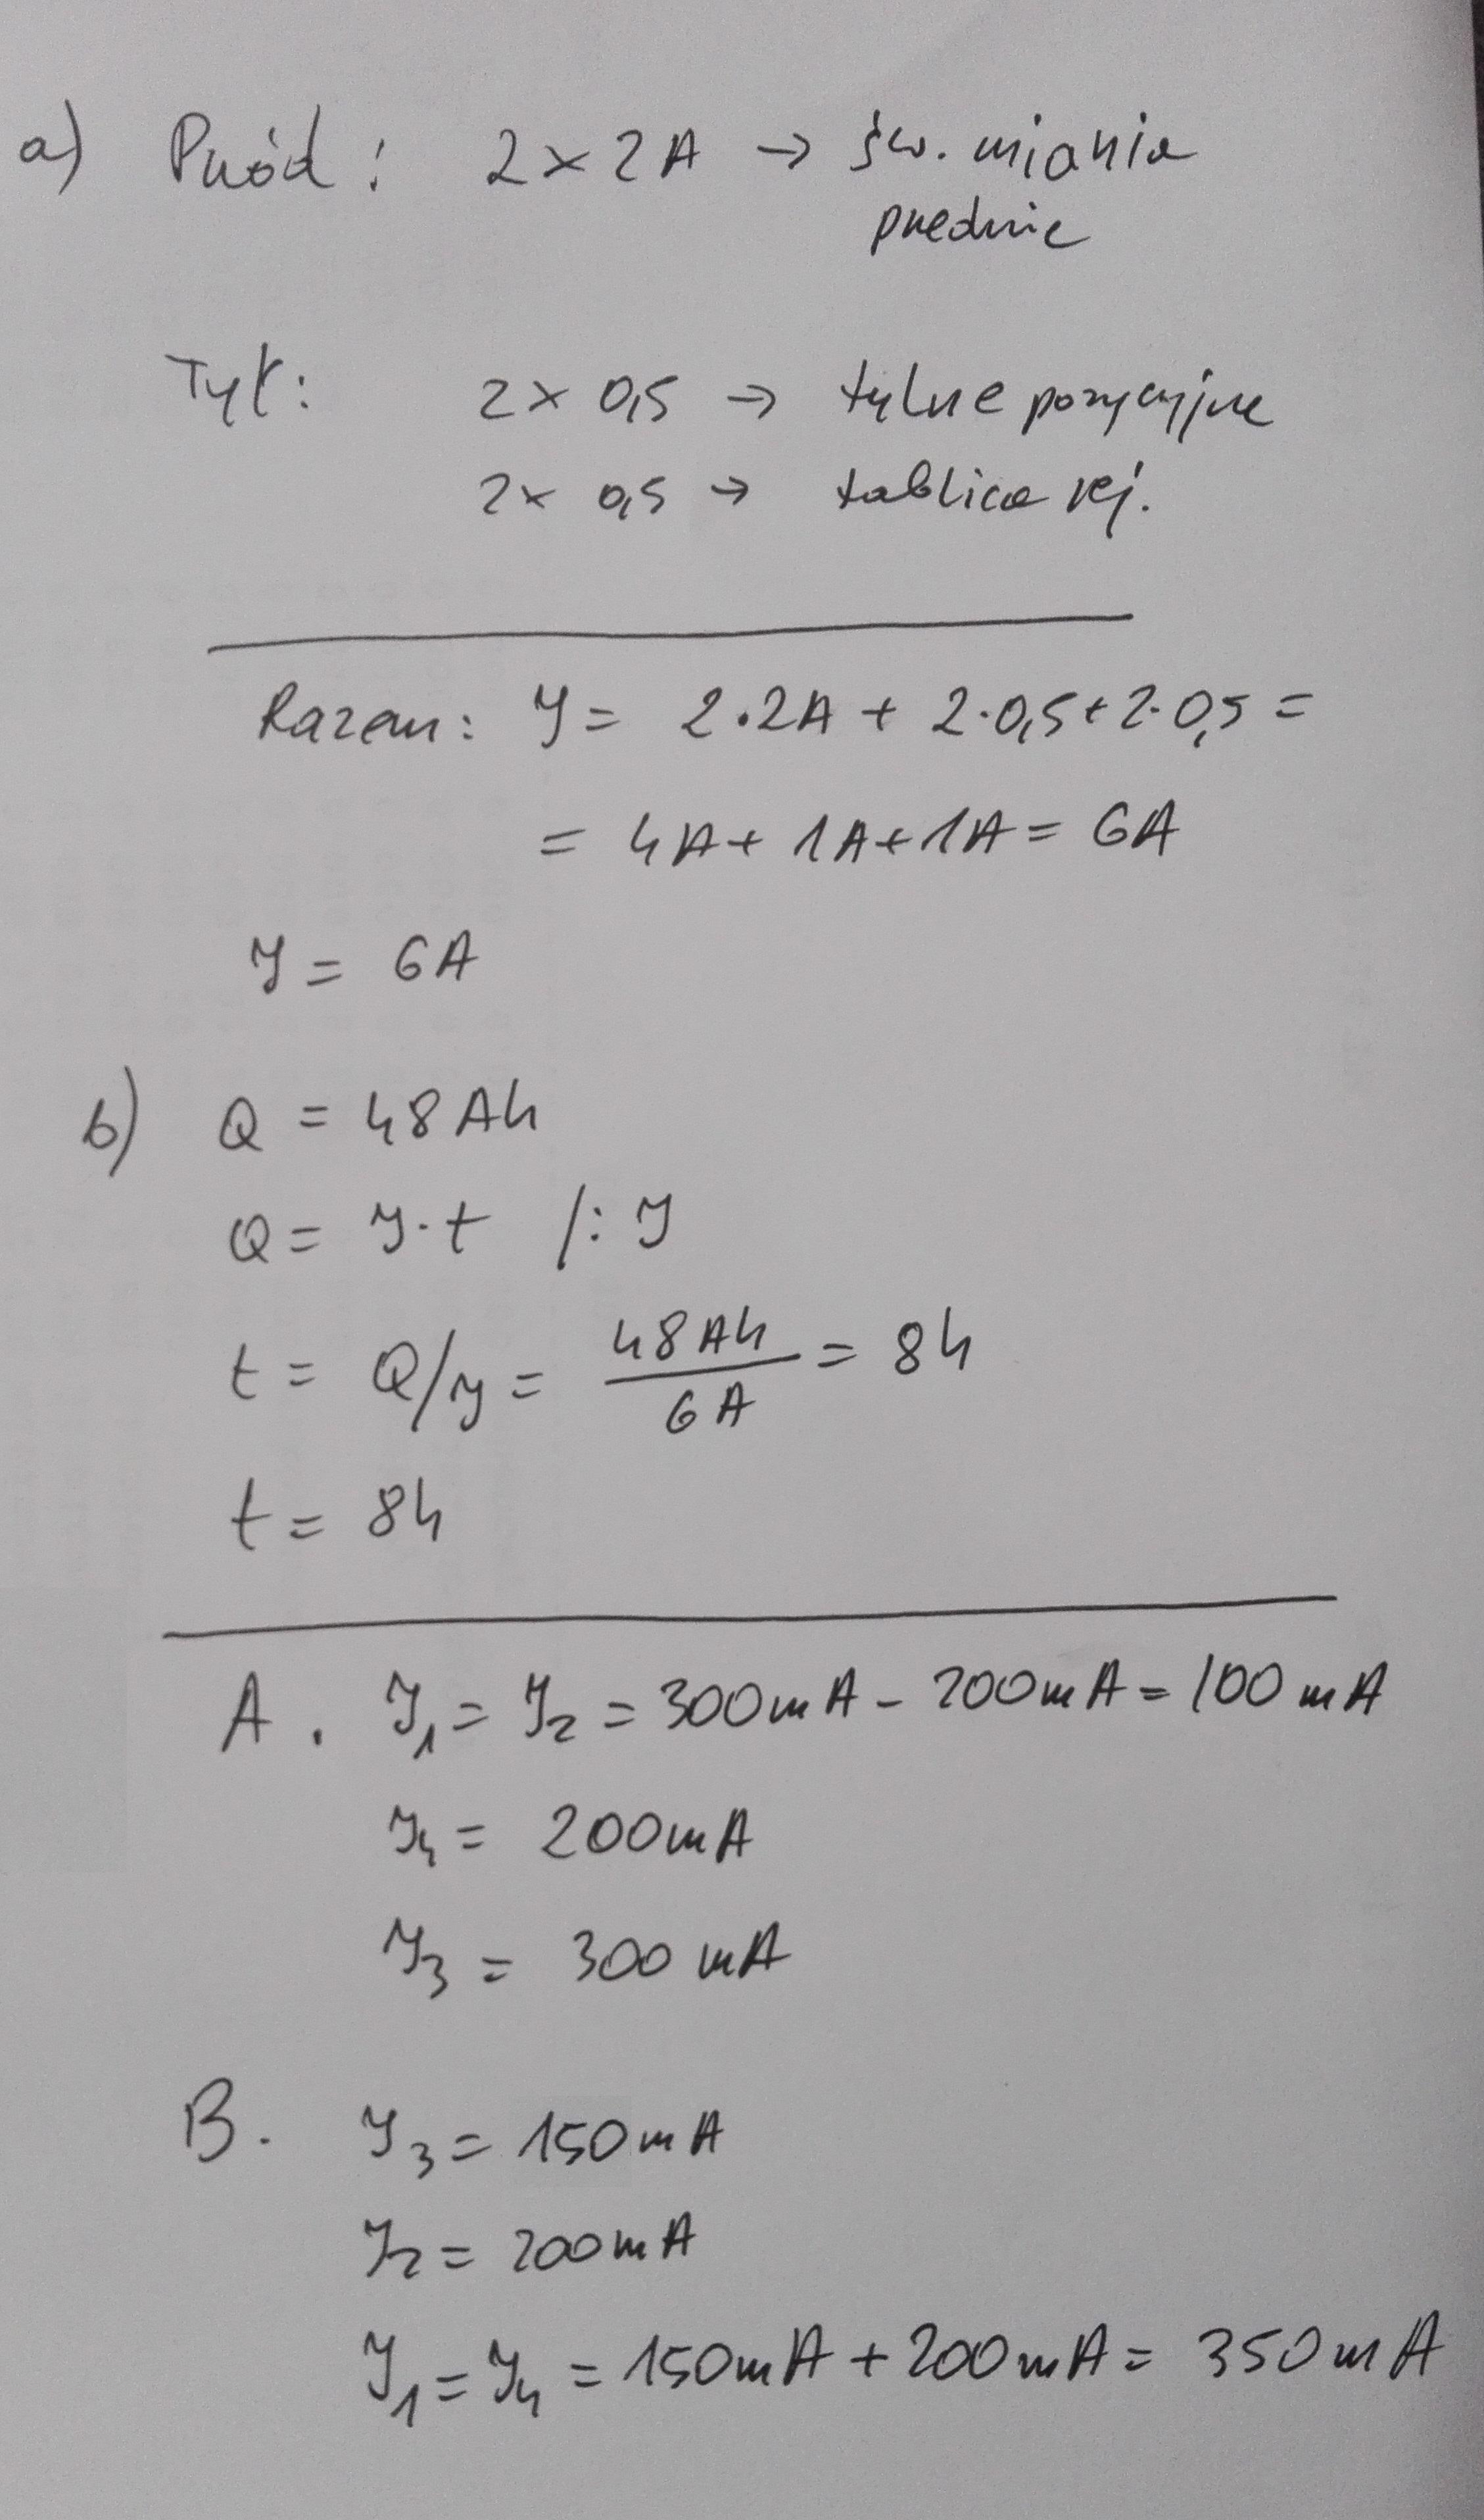 a) Przód: 2 x 2A → św. mijania
przednie
Tył: 2 x 0,5 → tylne pozycyjne
2x 0,5 → tablica rej.
Razem: I = 2·2A + 2·0,5+2·0,5 =
= 4A + 1A+1A = 6A
I = 6A
b) Q = 48Ah
Q = I·t /: I
t = Q/I = 48Ah/6A = 8h
t = 8h
A. I₁ = I₂ = 300mA - 200mA = 100mA
I₄ = 200mA
I₃ = 300mA
B. I₃ = 150mA
I₂ = 200mA
I₁ = I₄ = 150mA + 200mA = 350mA